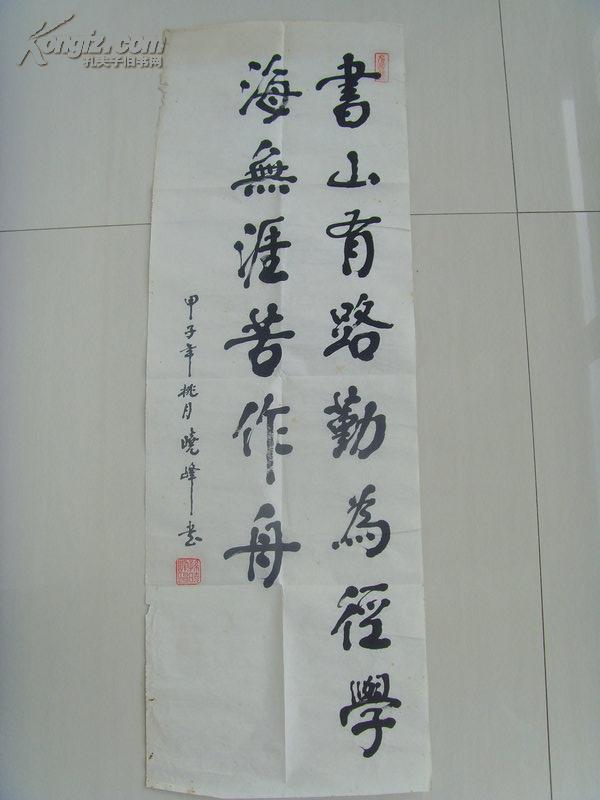 書山有路勤為徑學
海無涯苦作舟
甲子年桃月曉峰书
Kongfz.com
孔夫子旧书网